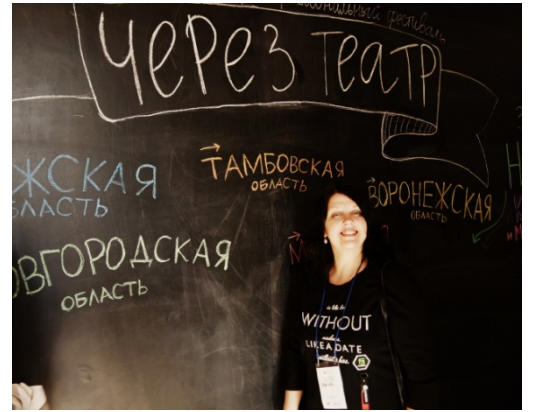 фестиваль
ЧЕРЕЗ ТЕАТР
ЖСКАЯ
ОБЛАСТЬ
ТАМБОВСКАЯ
ОБЛАСТЬ
ВОРОНЕЖСКАЯ
ОБЛАСТЬ
ОВГОРОДСКАЯ
ОБЛАСТЬ
WITHOUT
LIKE A DATE